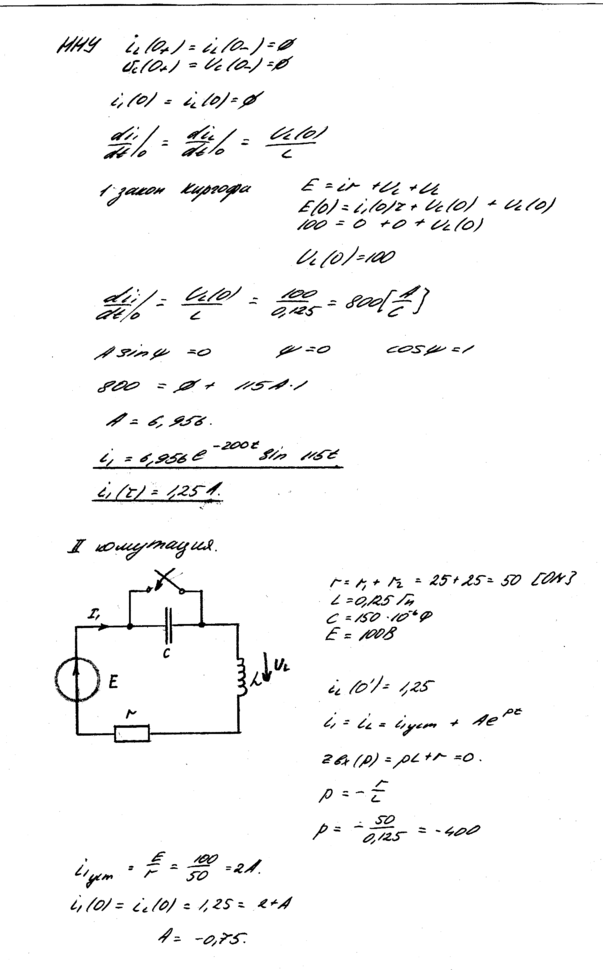 ННУ i_L(0+) = i_L(0-) = 0
U_C(0+) = U_C(0-) = 0
i_1(0) = i_L(0) = 0
di_1/dt|_0 = di_L/dt|_0 = U_L(0)/L
1 закон Киргофа E = ir + U_L + U_C
E(0) = i_1(0)r + U_C(0) + U_L(0)
100 = 0 + 0 + U_L(0)
U_L(0) = 100
di_1/dt|_0 = U_L(0)/L = 100/0,125 = 800 [A/c]
A sin ψ = 0 ψ = 0 cos ψ = 1
800 = 0 + 115A·1
A = 6,956.
i_1 = 6,956 e^{-200t} sin 115t
i_1(τ) = 1,25A.
II комутация.
r = r_1 + r_2 = 25 + 25 = 50 [Ом]
L = 0,125 Гн
C = 150·10^{-6} Ф
E = 100В
I_1
C
E
L
U_L
r
i_L(0') = 1,25
i_1 = i_L = i_1уст + Ae^{pt}
zвх(p) = pL + r = 0.
p = - r/L
p = - 50/0,125 = -400
i_1уст = E/r = 100/50 = 2A.
i_1(0) = i_L(0) = 1,25 = 2 + A
A = -0,75.